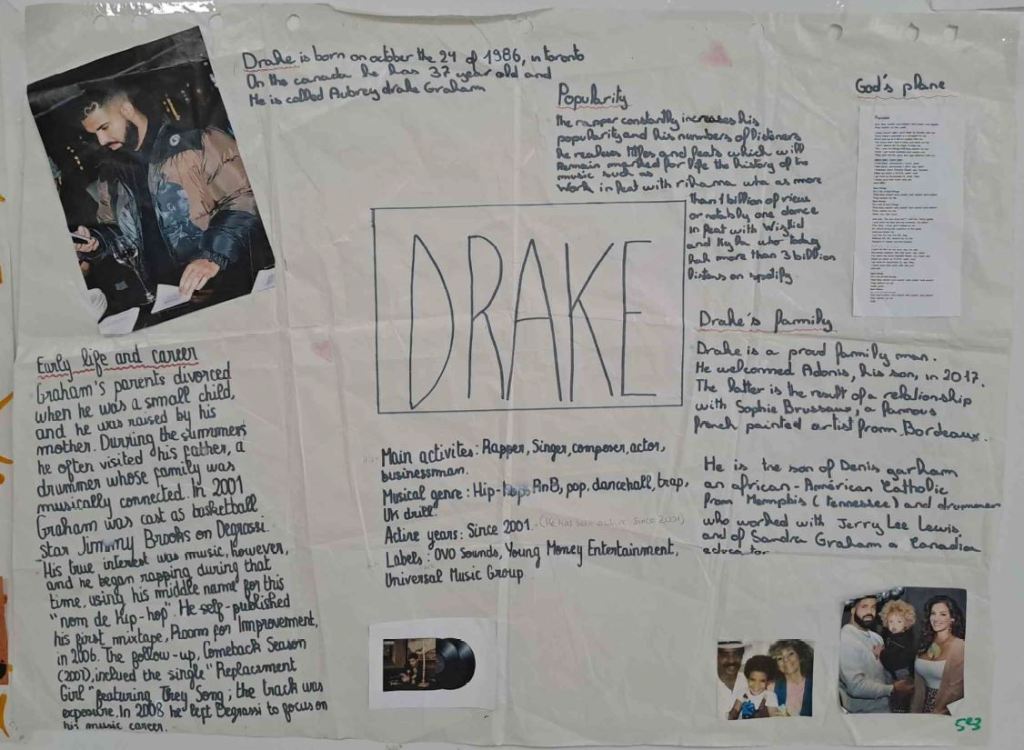 Drake is born on october the 24 of 1986, in toronto
On the canada he has 37 year old and
He is called Aubrey drake Graham
Popularity
the rapper constantly increases his
popularity and his numbers of listeners
he realises titles and feats which will
Remain marked for life the history of the
music such as
Work in feat with rihanna who as more
than 1 billion of views
or notably one dance
in feat with Wizkid
and Kyla who today
hah more than 3 billion
listens on spotify.
God's plane
DRAKE
Early life and career
Graham's parents divorced
when he was a small child,
and he was raised by his
mother. Durring the summers
he often visited his father, a
drummer whose family was
musically connected. In 2001
Graham was cast as basketball
star Jimmy Brooks on Degrassi.
His true interest was music, however,
and he began rapping during that
time, using his middle name for this
"nom de Hip-hop". He self-published
his first mixtape, Room for Improvement,
in 2006. The follow-up, Comeback Season
(2007), inclued the single "Replacement
Girl" featuring They Song; the track was
exposure. In 2008 he left Degrassi to focus on
his music career.
Main activites: Rapper, Singer, composer, actor,
businessman.
Musical genre: Hip-hop, RnB, pop, dancehall, trap,
UK drill
Active years: Since 2001 (He has been active since 2001)
Labels: OVO Sounds, Young Money Entertainment,
Universal Music Group.
Drake's family
Drake is a proud family man.
He welcommed Adonis, his son, in 2017.
The latter is the result of a relationship
with Sophie Brussaux, a famous
french painted artist from Bordeaux.
He is the son of Denis garham
an african-American Catholic
from Memphis (tennessee) and drummer
who worked with Jerry Lee Lewis
and of Sandra Graham a Canadian
educator
5e3